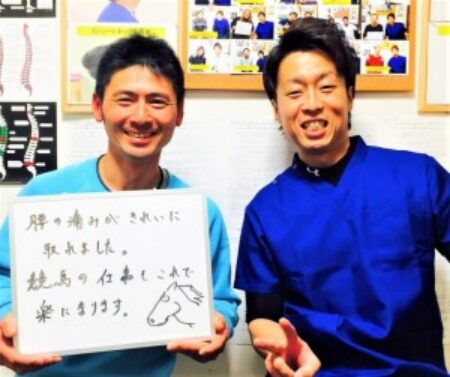 腰の痛みがきれいに
取れました。
競馬の仕事もこれで
楽になります。